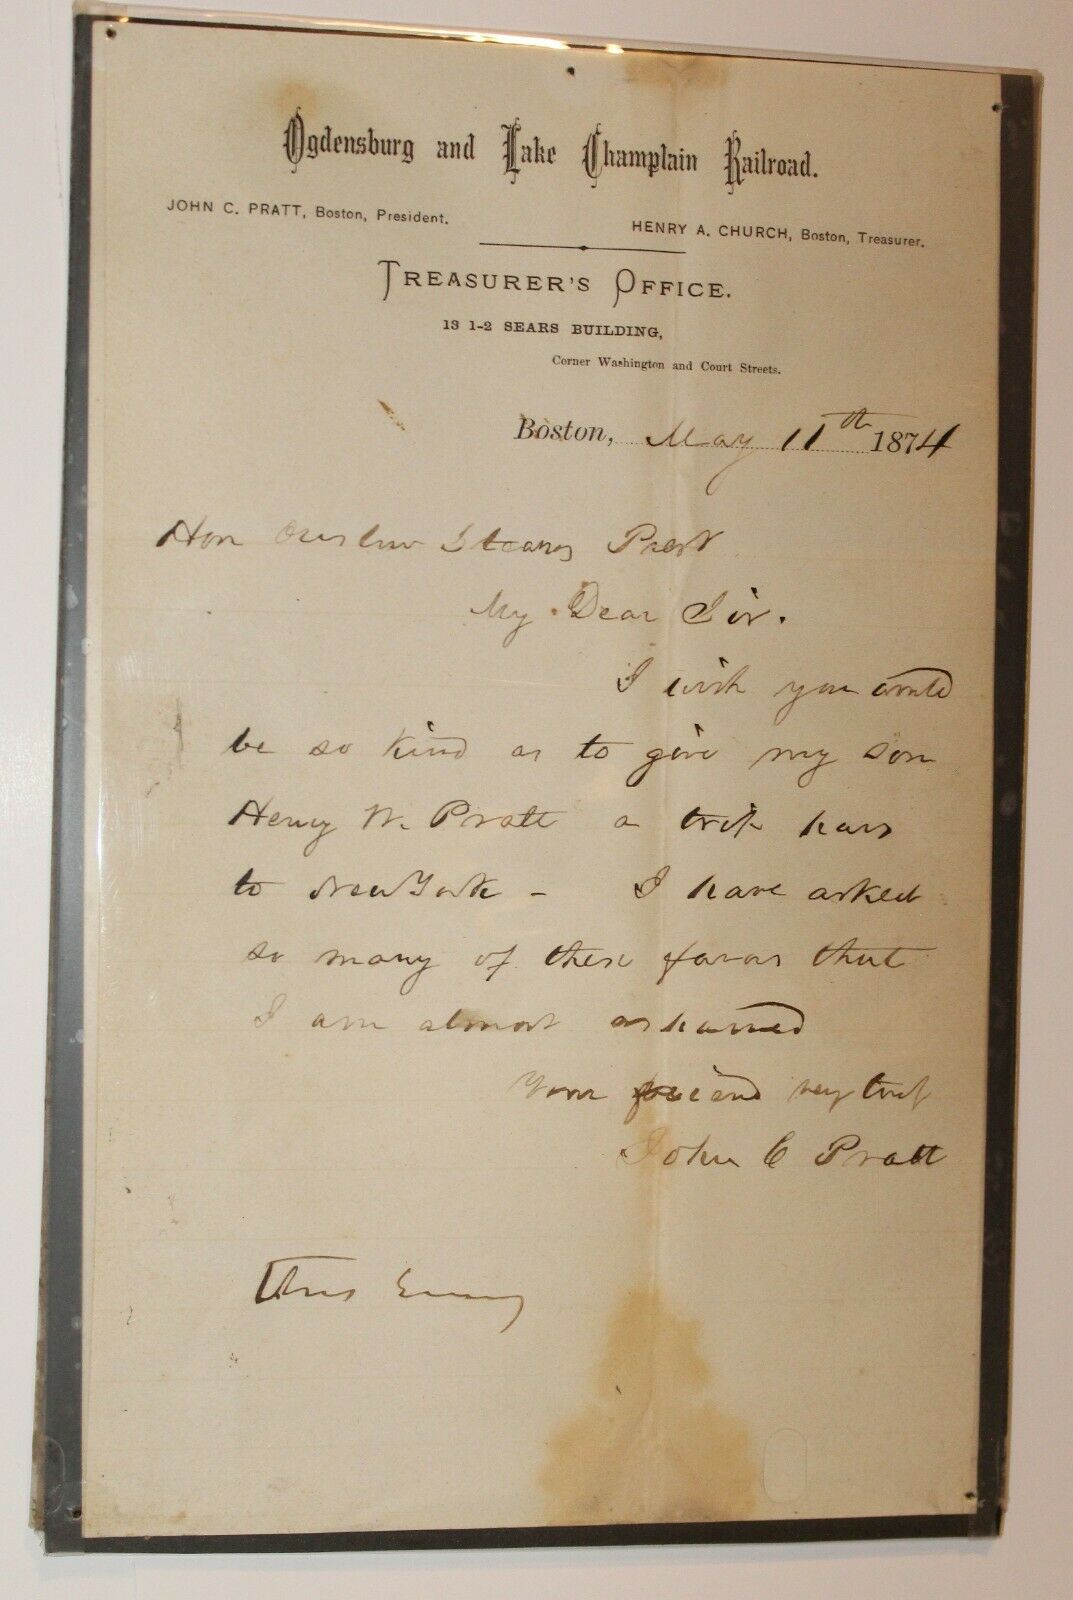 Ogdensburg and Lake Champlain Railroad.
JOHN C. PRATT, Boston, President.
HENRY A. CHURCH, Boston, Treasurer.
TREASURER'S OFFICE.
13 1-2 SEARS BUILDING,
Corner Washington and Court Streets.
Boston, May 11th 1874
Hon Onslow Stearns Prest
My Dear Sir.
I wish you would
be so kind as to give my son
Henry W. Pratt a trip pass
to New York - I have asked
so many of these favors that
I am almost ashamed
Your friend very truly
John C Pratt